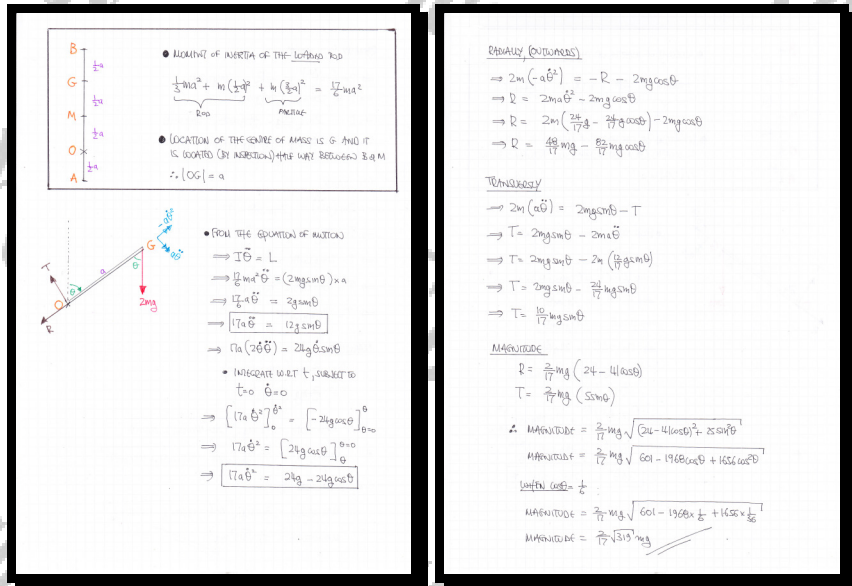 B
½a
G
½a
M
½a
O
½a
A
● MOMENT OF INERTIA OF THE LOADED ROD
⅓ma² + m(½a)² + m(3/2 a)² = 17/6 ma²
ROD PARTICLE
● LOCATION OF THE CENTRE OF MASS IS G AND IT
IS LOCATED (BY INSPECTION) HALF WAY BETWEEN B & M
∴ |OG| = a
-aθ̇²
aθ̈
G
θ
a
T
θ
O
R
2mg
● FROM THE EQUATION OF MOTION
⇒ Iθ̈ = L
⇒ 17/6 ma²θ̈ = (2mgsinθ) × a
⇒ 17/6 aθ̈ = 2gsinθ
⇒ 17aθ̈ = 12gsinθ
⇒ 17a(2θ̇θ̈) = 24gθ̇sinθ
● INTEGRATE W.R.T t, SUBJECT TO
t=0 θ̇=0
⇒ [17aθ̇²]₀^θ̇² = [-24gcosθ]_θ=0^θ
⇒ 17aθ̇² = [24gcosθ]_θ^θ=0
⇒ 17aθ̇² = 24g - 24gcosθ
RADIALLY, (OUTWARDS)
⇒ 2m(-aθ̇²) = -R - 2mgcosθ
⇒ R = 2maθ̇² - 2mgcosθ
⇒ R = 2m(24/17 g - 24/17 gcosθ) - 2mgcosθ
⇒ R = 48/17 mg - 82/17 mgcosθ
TRANSVERSELY
⇒ 2m(aθ̈) = 2mgsinθ - T
⇒ T = 2mgsinθ - 2maθ̈
⇒ T = 2mgsinθ - 2m(12/17 gsinθ)
⇒ T = 2mgsinθ - 24/17 mgsinθ
⇒ T = 10/17 mgsinθ
MAGNITUDE
R = 2/17 mg (24 - 41cosθ)
T = 2/17 mg (5sinθ)
∴ MAGNITUDE = 2/17 mg √((24-41cosθ)² + 25sin²θ)
MAGNITUDE = 2/17 mg √(601 - 1968cosθ + 1656cos²θ)
WHEN cosθ = 1/6
MAGNITUDE = 2/17 mg √(601 - 1968×1/6 + 1656×1/36)
MAGNITUDE = 2/17 √319 mg